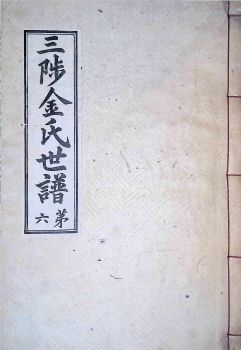 三陟金氏世譜
苐六